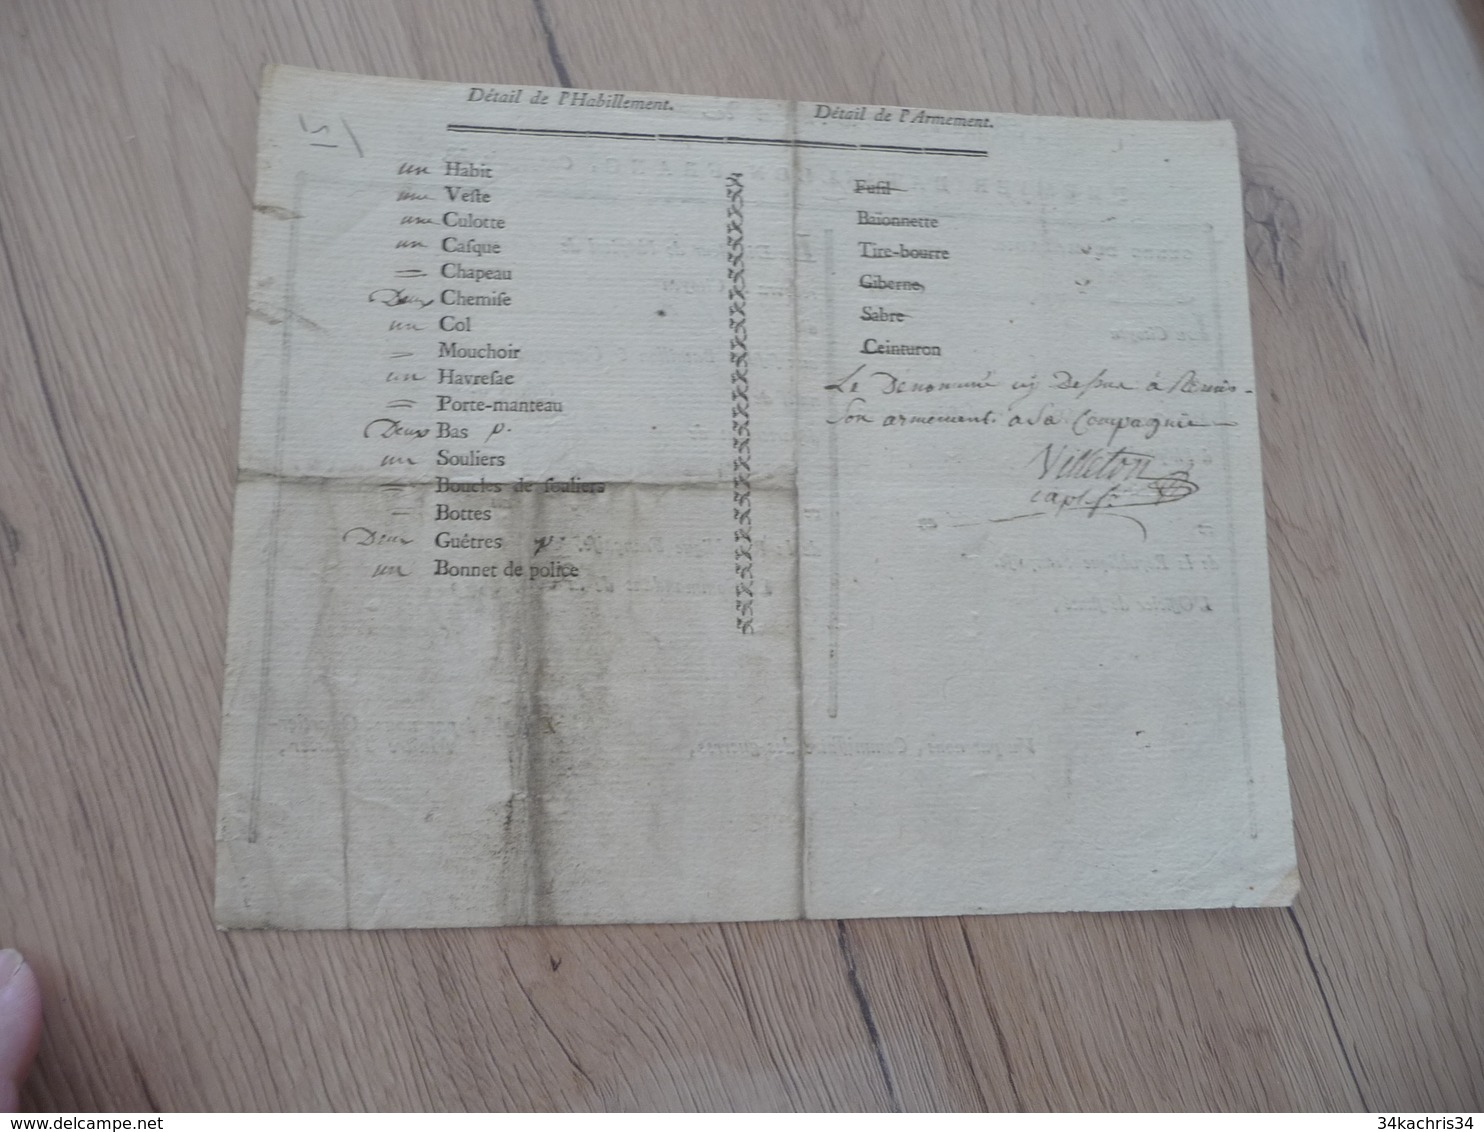 Détail de l'Habillement.
un Habit
une Veſte
une Culotte
un Caſque
= Chapeau
Deux Chemiſe
un Col
= Mouchoir
un Havreſac
= Porte-manteau
Deux Bas p.
un Souliers
= Boucles de ſouliers
- Bottes
Deux Guêtres p.
un Bonnet de police
Détail de l'Armement.
Fuſil
Baïonnette
Tire-bourre
Giberne,
Sabre
Ceinturon
Le Denommé cy Dessus à Remis
Son armement a Sa Compagnie
Villeton
capt.
delcampe.net
34kachris34